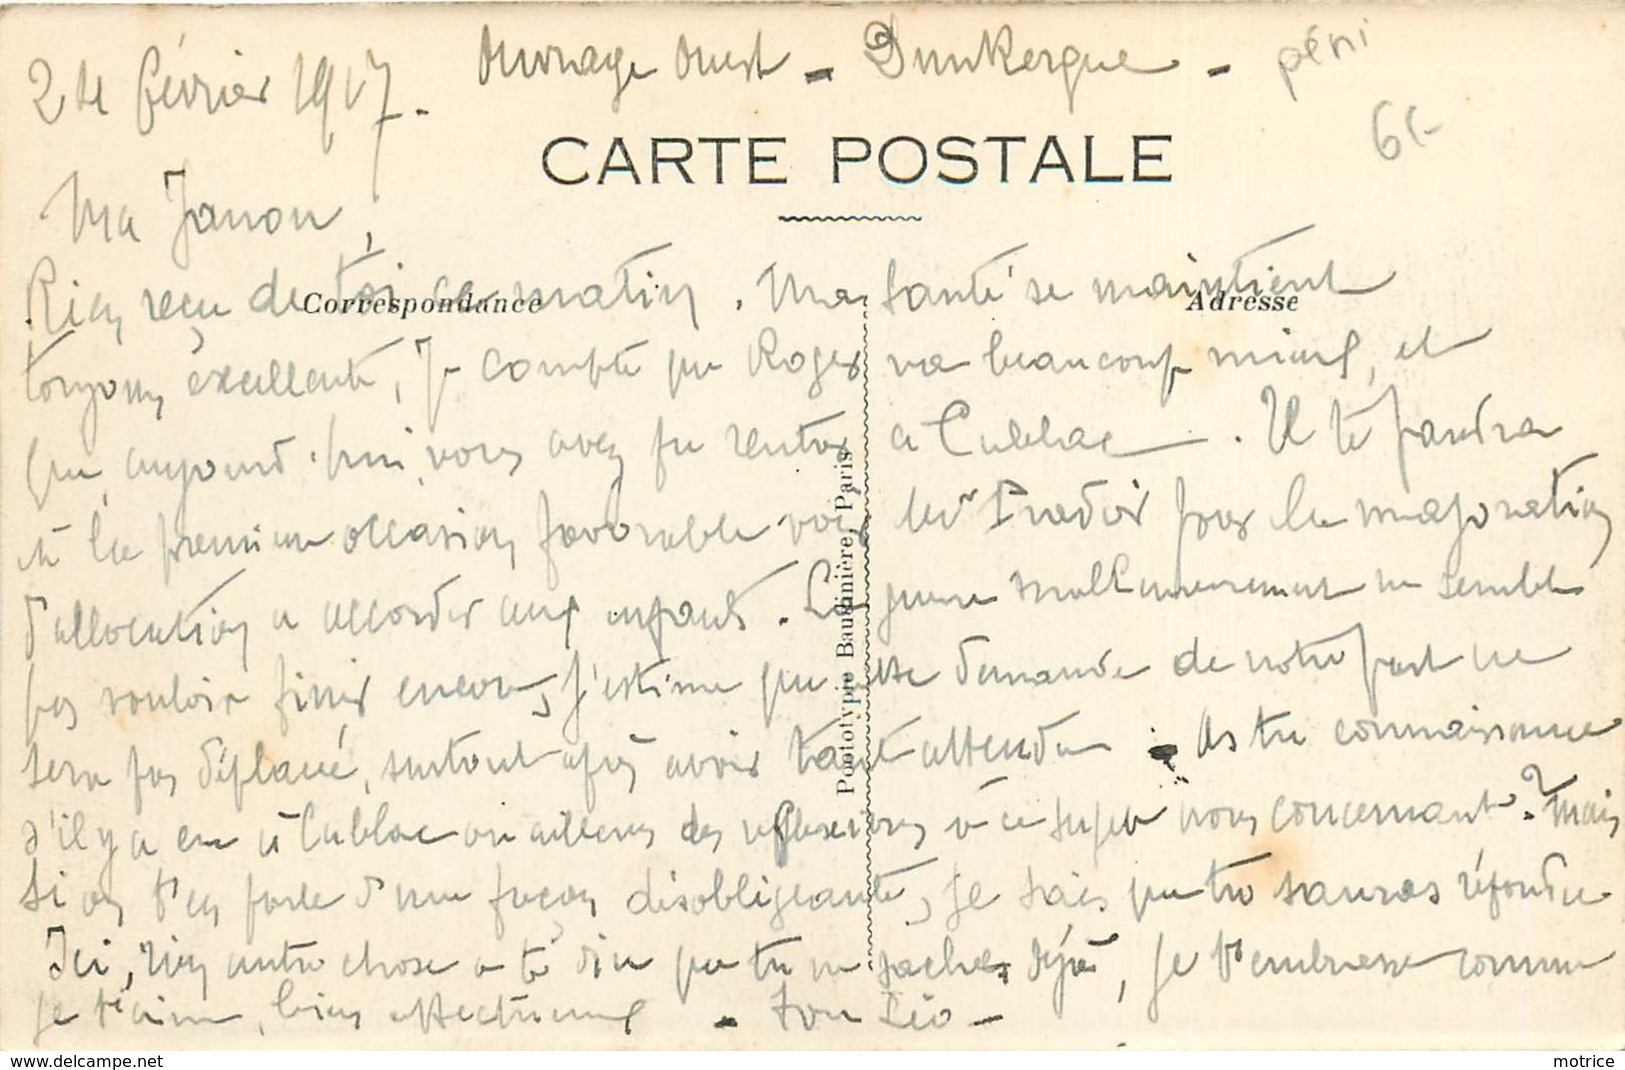 24 février 1917. Ouvrage Ouest - Dunkerque - péni
65-
CARTE POSTALE
Ma Janon,
Correspondance
Adresse
Rien reçu de toi ce matin. Ma santé se maintient
toujours excellente, Je compte que Roger va beaucoup mieux, et
que, aujourd'hui, vous avez pu rentrer a Cublac. Il te faudra
à la première occasion favorable voir Mr Pradier pour la majoration
d'allocation a accorder aux enfants. La guerre malheureusement ne semble
pas vouloir finir encore, J'estime que cette demande de notre part ne
sera pas déplacée, surtout après avoir tant attendu. As tu connaissance
s'il y a eu à Cublac ou ailleurs des réflexions à ce sujet nous concernant? Mais
si on t'en parle d'une façon désobligeante, je sais que tu sauras répondre
Ici, rien autre chose a te dire que tu ne saches déjà, Je t'embrasse comme
je t'aime, bien affectueux - Ton Léo -
Pootolypie Baudinière, Paris
www.delcampe.net
motrice